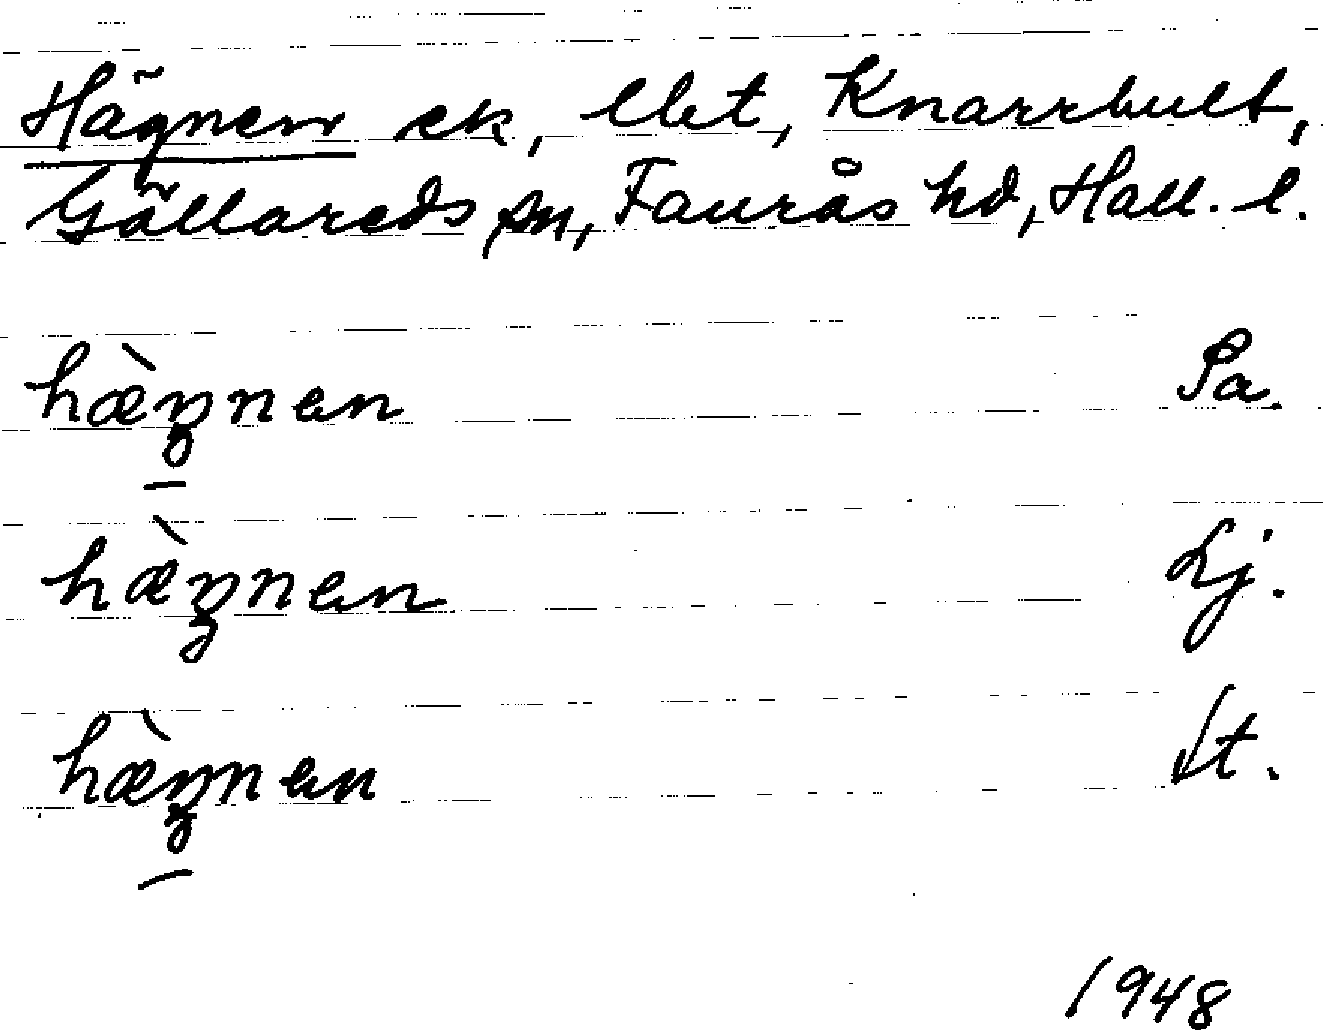 Hägnen ek, lbt, Knarrhult,
Gällareds sn, Faurås hd, Hall. l.
hæ̀ŋnen Pa.
hæ̀ŋnen Lj.
hæ̀ŋnen St.
1948